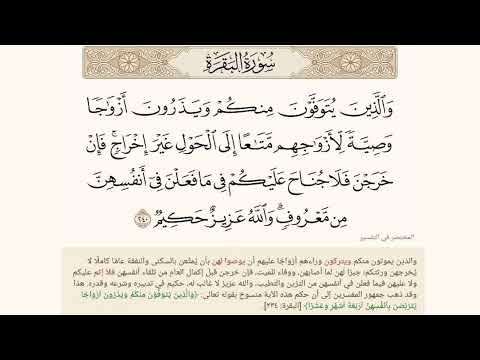 سُورَةُ البَقَرَةِ
وَٱلَّذِينَ يُتَوَفَّوْنَ مِنكُمْ وَيَذَرُونَ أَزْوَٰجًا
وَصِيَّةً لِّأَزْوَٰجِهِم مَّتَٰعًا إِلَى ٱلْحَوْلِ غَيْرَ إِخْرَاجٍۚ فَإِنْ
خَرَجْنَ فَلَا جُنَاحَ عَلَيْكُمْ فِى مَا فَعَلْنَ فِىٓ أَنفُسِهِنَّ
مِن مَّعْرُوفٍۗ وَٱللَّهُ عَزِيزٌ حَكِيمٌ ٢٤٠
المختصر في التفسير
والذين يموتون منكم ويتركون وراءهم أزواجًا عليهم أن يوصوا لهن بأن يُمتَّعن بالسكنى والنفقة عامًا كاملًا لا
يُخرجهن ورثتكم؛ جبرًا لهن لما أصابهن، ووفاء للميت، فإن خرجن قبل إكمال العام من تلقاء أنفسهن فلا إثم عليكم
ولا عليهن فيما فعلن في أنفسهن من التزين والتطيب، والله عزيز لا غالب له، حكيم في تدبيره وشرعه وقدره. هذا
وقد ذهب جمهور المفسرين إلى أن حكم هذه الآية منسوخ بقوله تعالى: ﴿وَالَّذِينَ يُتَوَفَّوْنَ مِنكُمْ وَيَذَرُونَ أَزْوَاجًا
يَتَرَبَّصْنَ بِأَنفُسِهِنَّ أَرْبَعَةَ أَشْهُرٍ وَعَشْرًا﴾ [البقرة: ٢٣٤].